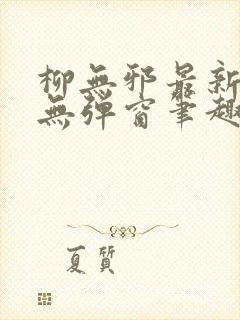 柳無邪最新
無彈窗筆趣
夏質